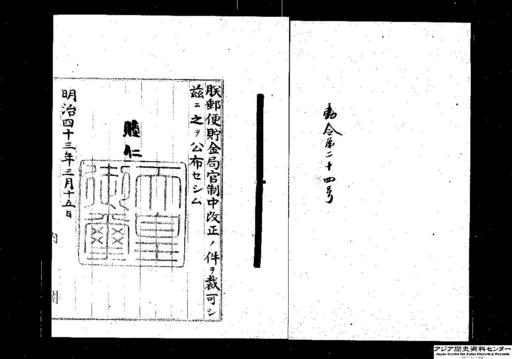 勅令第二十四号
朕郵便貯金局官制中改正ノ件ヲ裁可シ
茲ニ之ヲ公布セシム
睦仁
天皇御璽
明治四十三年三月十五日
内閣
アジア歴史資料センター
Japan Center for Asian Historical Records